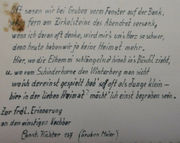 Oft sassen wir bei Gruben vorm Fenster auf der Bank,
fern am Zirkelsteine das Abendrot versank,
wenn ich daran oft denke, wird mir's um's Herz so schwer,
denn heute haben wir ja keine Heimat mehr.
Hier, wo die Elbe sich schlängelnd in's zieht,
u. wo vom Schneeberg den Winterberg man sieht
wo ich dereinst gespielt hab' oft als junge klein -
hier in der lieben Heimat möcht' ich einst begraben sein.
Zur frdl. Erinnerung
an den einstigen Nachbar
Ernst Richter (Gruben Maler)